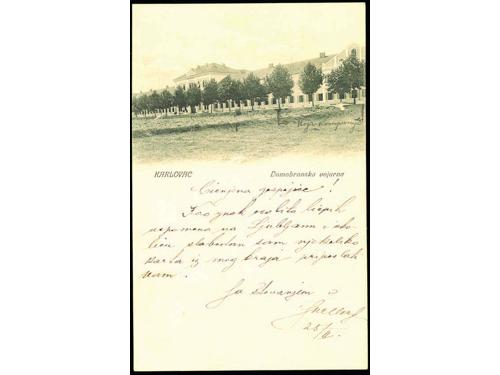 KARLOVAC
Domobranska vojarna
Cienjena gospojice!
Kao znak osobito liepih
uspomena na Ljubljanu i oko-
licu slobodan sam njekoliko
karta iz mog kraja priposlati
Vam.
Sa štovanjem